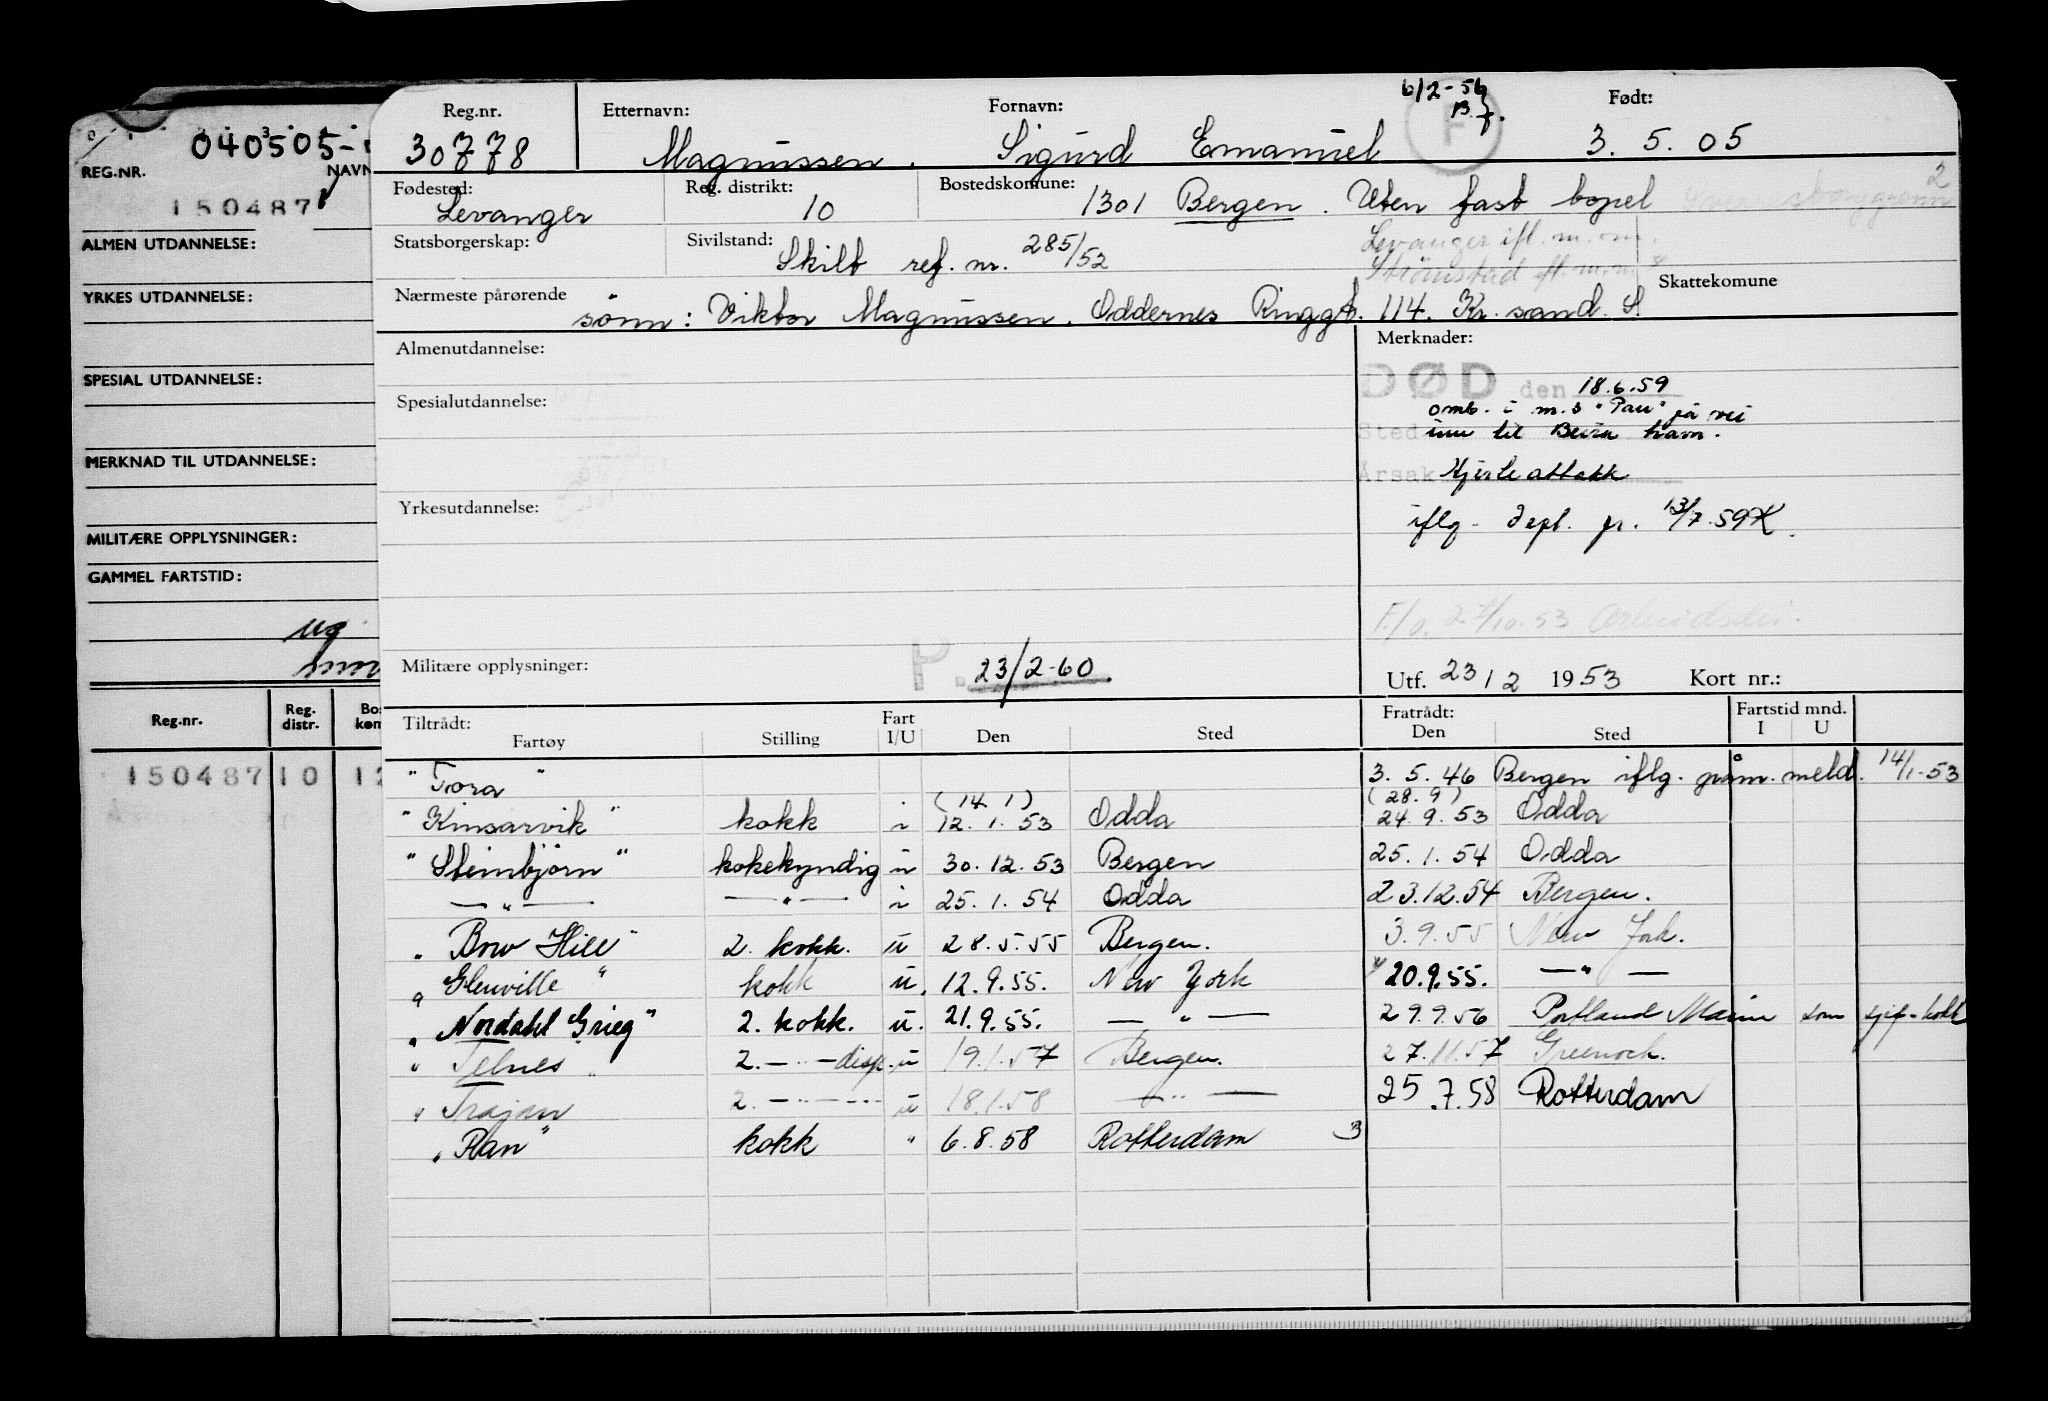 040505-
REG.NR. NAVN
150487
ALMEN UTDANNELSE:
YRKES UTDANNELSE:
SPESIAL UTDANNELSE:
MERKNAD TIL UTDANNELSE:
MILITÆRE OPPLYSNINGER:
GAMMEL FARTSTID:
Reg.nr. Reg. distr. Bo. kom
150487 10 12
6/2-56
Reg.nr. Etternavn: Fornavn: F Født:
30778 Magnussen. Sigurd Emanuel 3. 5. 05
Fødested: Reg. distrikt: Bostedskomune: 2
Levanger 10 1301 Bergen. Uten fast bopel
Statsborgerskap: Sivilstand: Levanger ifl. m. om.
Skilt ref. nr. 285/52 Strömstad
Nærmeste pårørende Skattekomune
sönn: Viktor Magnussen. Oddernes Ringgt. 114. Kr. sand. S.
Almenutdannelse: Merknader:
DØD den 18.6.59
Spesialutdannelse: omb. i m.s "Pan" på vei
Sted inn til Beira havn.
Årsak Hjerteattakk
Yrkesutdannelse: iflg. dept. pr. 13/7.59
F/o. 27/10.53
Militære opplysninger: P. 23/2-60. Utf. 23/2 1953 Kort nr.:
Tiltrådt: Fart Fratrådt: Fartstid mnd.
Fartøy Stilling I/U Den Sted Den Sted I U
"Tora" 3. 5. 46 Bergen iflg. påm. meld. 14/1-53
(14 1) (28. 9)
"Kinsarvik" kokk i 12. 1. 53 Odda 24. 9. 53 Odda
"Steinbjörn" kokekyndig i 30. 12. 53 Bergen 25. 1. 54 Odda
— " — — " — i 25. 1. 54 Odda 23.12.54 Bergen.
"Bow Hill" 2. kokk. u 28. 5. 55 Bergen. 3. 9. 55 New York.
"Glenville" kokk u. 12.9.55. New York 20.9.55. — " —
"Nordahl Grieg" 2. kokk. u. 21.9.55. — " — 29.9.56 Portland Maine som sjef-kokk
"Telnes" 2. — " — disp. u 19.1.57 Bergen. 27.11.57 Greenock.
"Trajan 2. — " — u 18.1.58 — " — 25.7.58 Rotterdam
"Ran" kokk " 6.8.58 Rotterdam